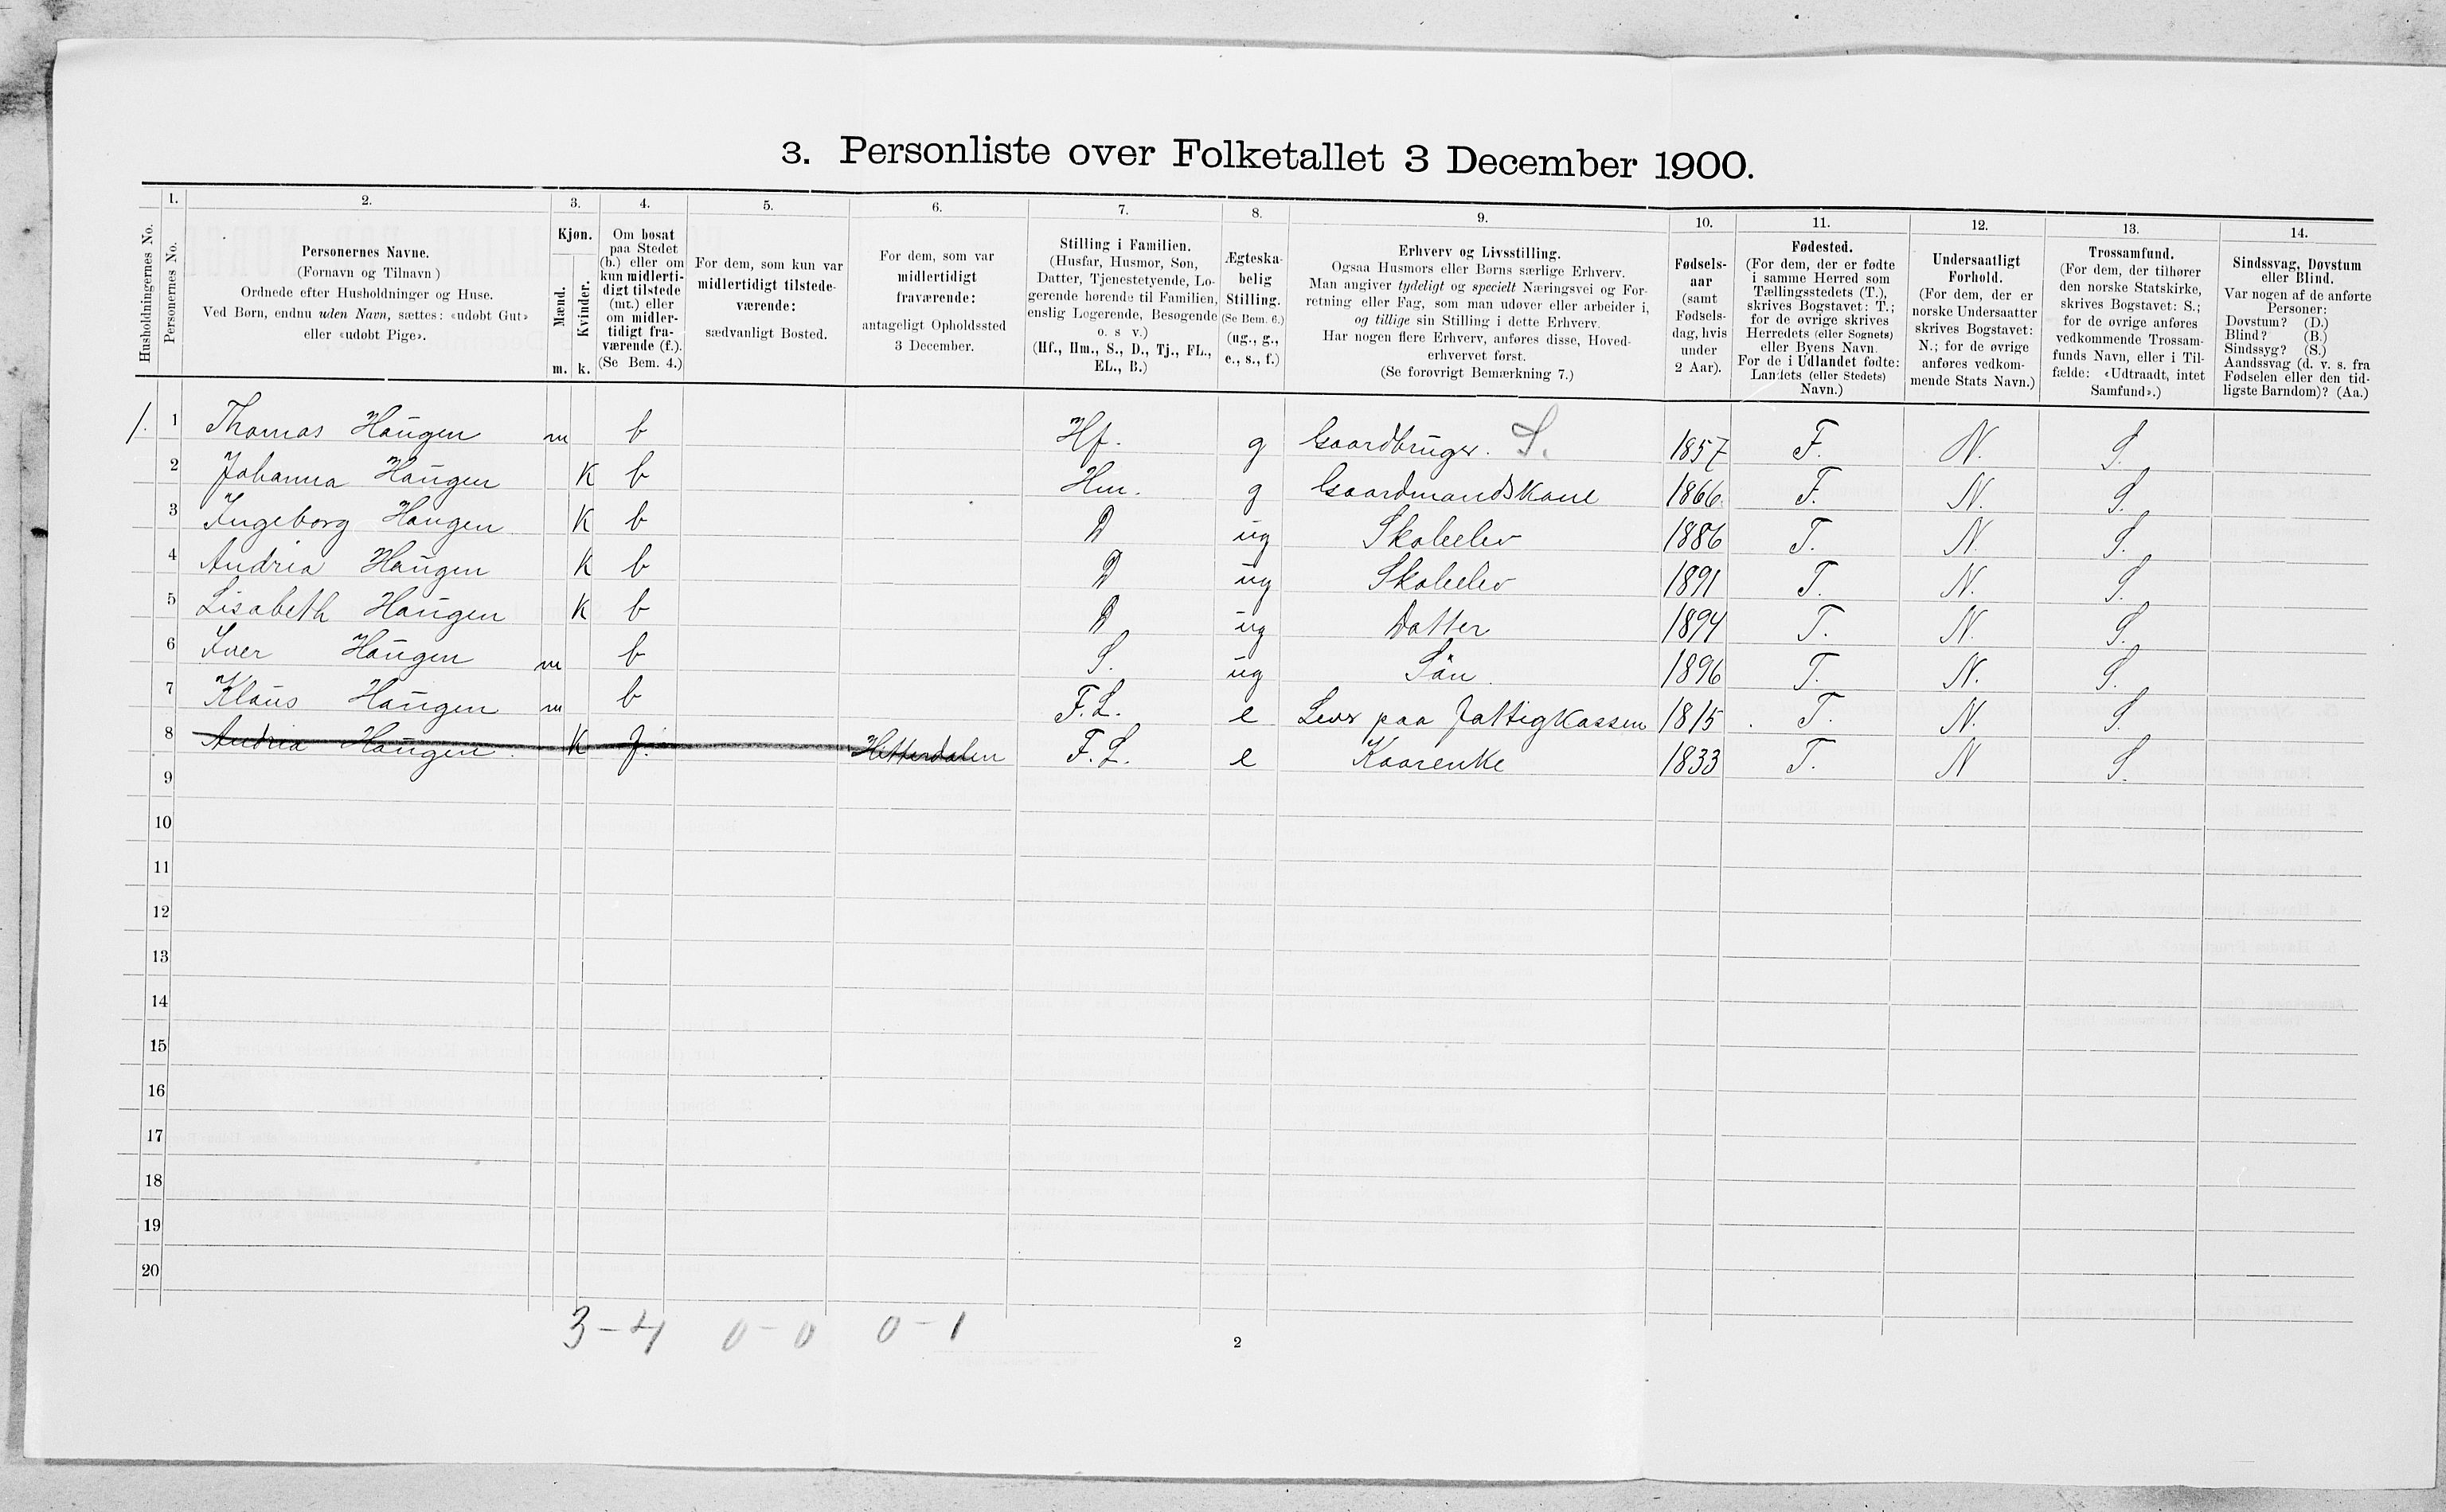 3. Personliste over Folketallet 3 December 1900.
1. 2. 3. 4. 5. 6. 7. 8. 9. 10. 11. 12. 13. 14.
Husholdningernes No.
Personernes No.
Personernes Navne.
(Fornavn og Tilnavn)
Ordnede efter Husholdninger og Huse.
Ved Børn, endnu uden Navn, sættes: «udøbt Gut»
eller «udøbt Pige».
Kjøn.
Mænd.
Kvinder.
m. k.
Om bosat
paa Stedet
(b.) eller om
kun midlerti-
digt tilstede
(mt.) eller
om midler-
tidigt fra-
værende (f.).
(Se Bem. 4.)
For dem, som kun var
midlertidigt tilstede-
værende:
sædvanligt Bosted.
For dem, som var
midlertidigt
fraværende:
antageligt Opholdssted
3 December.
Stilling i Familien.
(Husfar, Husmor, Søn,
Datter, Tjenestetyende, Lo-
gerende hørende til Familien,
enslig Logerende, Besøgende
o. s v.)
(Hf., Hm., S., D., Tj., FL.,
EL., B.)
Ægteska-
belig
Stilling.
(Se Bem. 6.)
(ug., g.,
e., s., f.)
Erhverv og Livsstilling.
Ogsaa Husmors eller Børns særlige Erhverv.
Man angiver tydeligt og specielt Næringsvei og For-
retning eller Fag, som man udøver eller arbeider i,
og tillige sin Stilling i dette Erhverv.
Har nogen flere Erhverv, anføres disse, Hoved-
erhvervet først.
(Se forøvrigt Bemærkning 7.)
Fødsels-
aar
(samt
Fødsels-
dag, hvis
under
2 Aar).
Fødested.
(For dem, der er fødte
i samme Herred som
Tællingsstedets (T.),
skrives Bogstavet: T.;
for de øvrige skrives
Herredets (eller Sognets)
eller Byens Navn.
For de i Udlandet fødte:
Landets (eller Stedets)
Navn.)
Undersaatligt
Forhold.
(For dem, der er
norske Undersaatter
skrives Bogstavet:
N.; for de øvrige
anføres vedkom-
mende Stats Navn.)
Trossamfund.
(For dem, der tilhører
den norske Statskirke,
skrives Bogstavet: S.;
for de øvrige anføres
vedkommende Trossam-
funds Navn, eller i Til-
fælde: «Udtraadt, intet
Samfund».)
Sindssvag, Døvstum
eller Blind.
Var nogen af de anførte
Personer:
Døvstum? (D.)
Blind? (B.)
Sindssyg? (S.)
Aandssvag (d. v. s. fra
Fødselen eller den tid-
ligste Barndom)? (Aa.)
1. 1 Thomas Haugen m b Hf. g Gaardbruger. S. 1857 T. N. S.
2 Johanna Haugen K b Hm. g GaardmandsKone 1866. T. N. S.
3 Ingeborg Haugen K b D ug Skoleelev 1886 T. N. S.
4 Andria Haugen K b D ug Skoleelev 1891 T. N. S.
5 Lisabeth Haugen K b D ug Datter 1894 T. N. S.
6 Iver Haugen m b S. ug Sön. 1896 T. N. S.
7 Klaus Haugen m b F.L. e Lever paa FattigKassen 1815 T. N. S
8 Andria Haugen K f. Hitterdalen F.L. e Kaarenke 1833 T. N S.
9
10
11
12
13
14
15
16
17
18
19
20
3-4 0-0 0-1
2